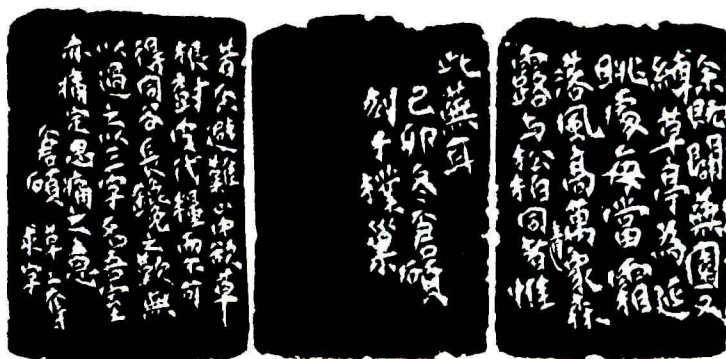 余既闢蕪園又
縛草亭為延
眺處每當霜
落風高萬家
露与松柏同者惟
此蕪耳
己卯冬倉碩
刻于樸巢
昔余避難山中欲草
根樹皮代糧而不可
得同谷長鑱之歎無
以過之以二字名吾室
亦痛定思痛之意
倉碩 草上奪
求字